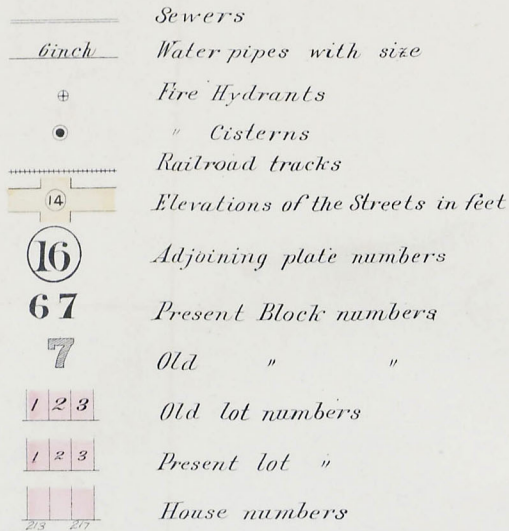 Sewers
6inch Water pipes with size
Fire Hydrants
" Cisterns
Railroad tracks
14 Elevations of the Streets in feet
16 Adjoining plate numbers
67 Present Block numbers
7 Old " "
1 2 3 Old lot numbers
1 2 3 Present lot "
House numbers
213 217